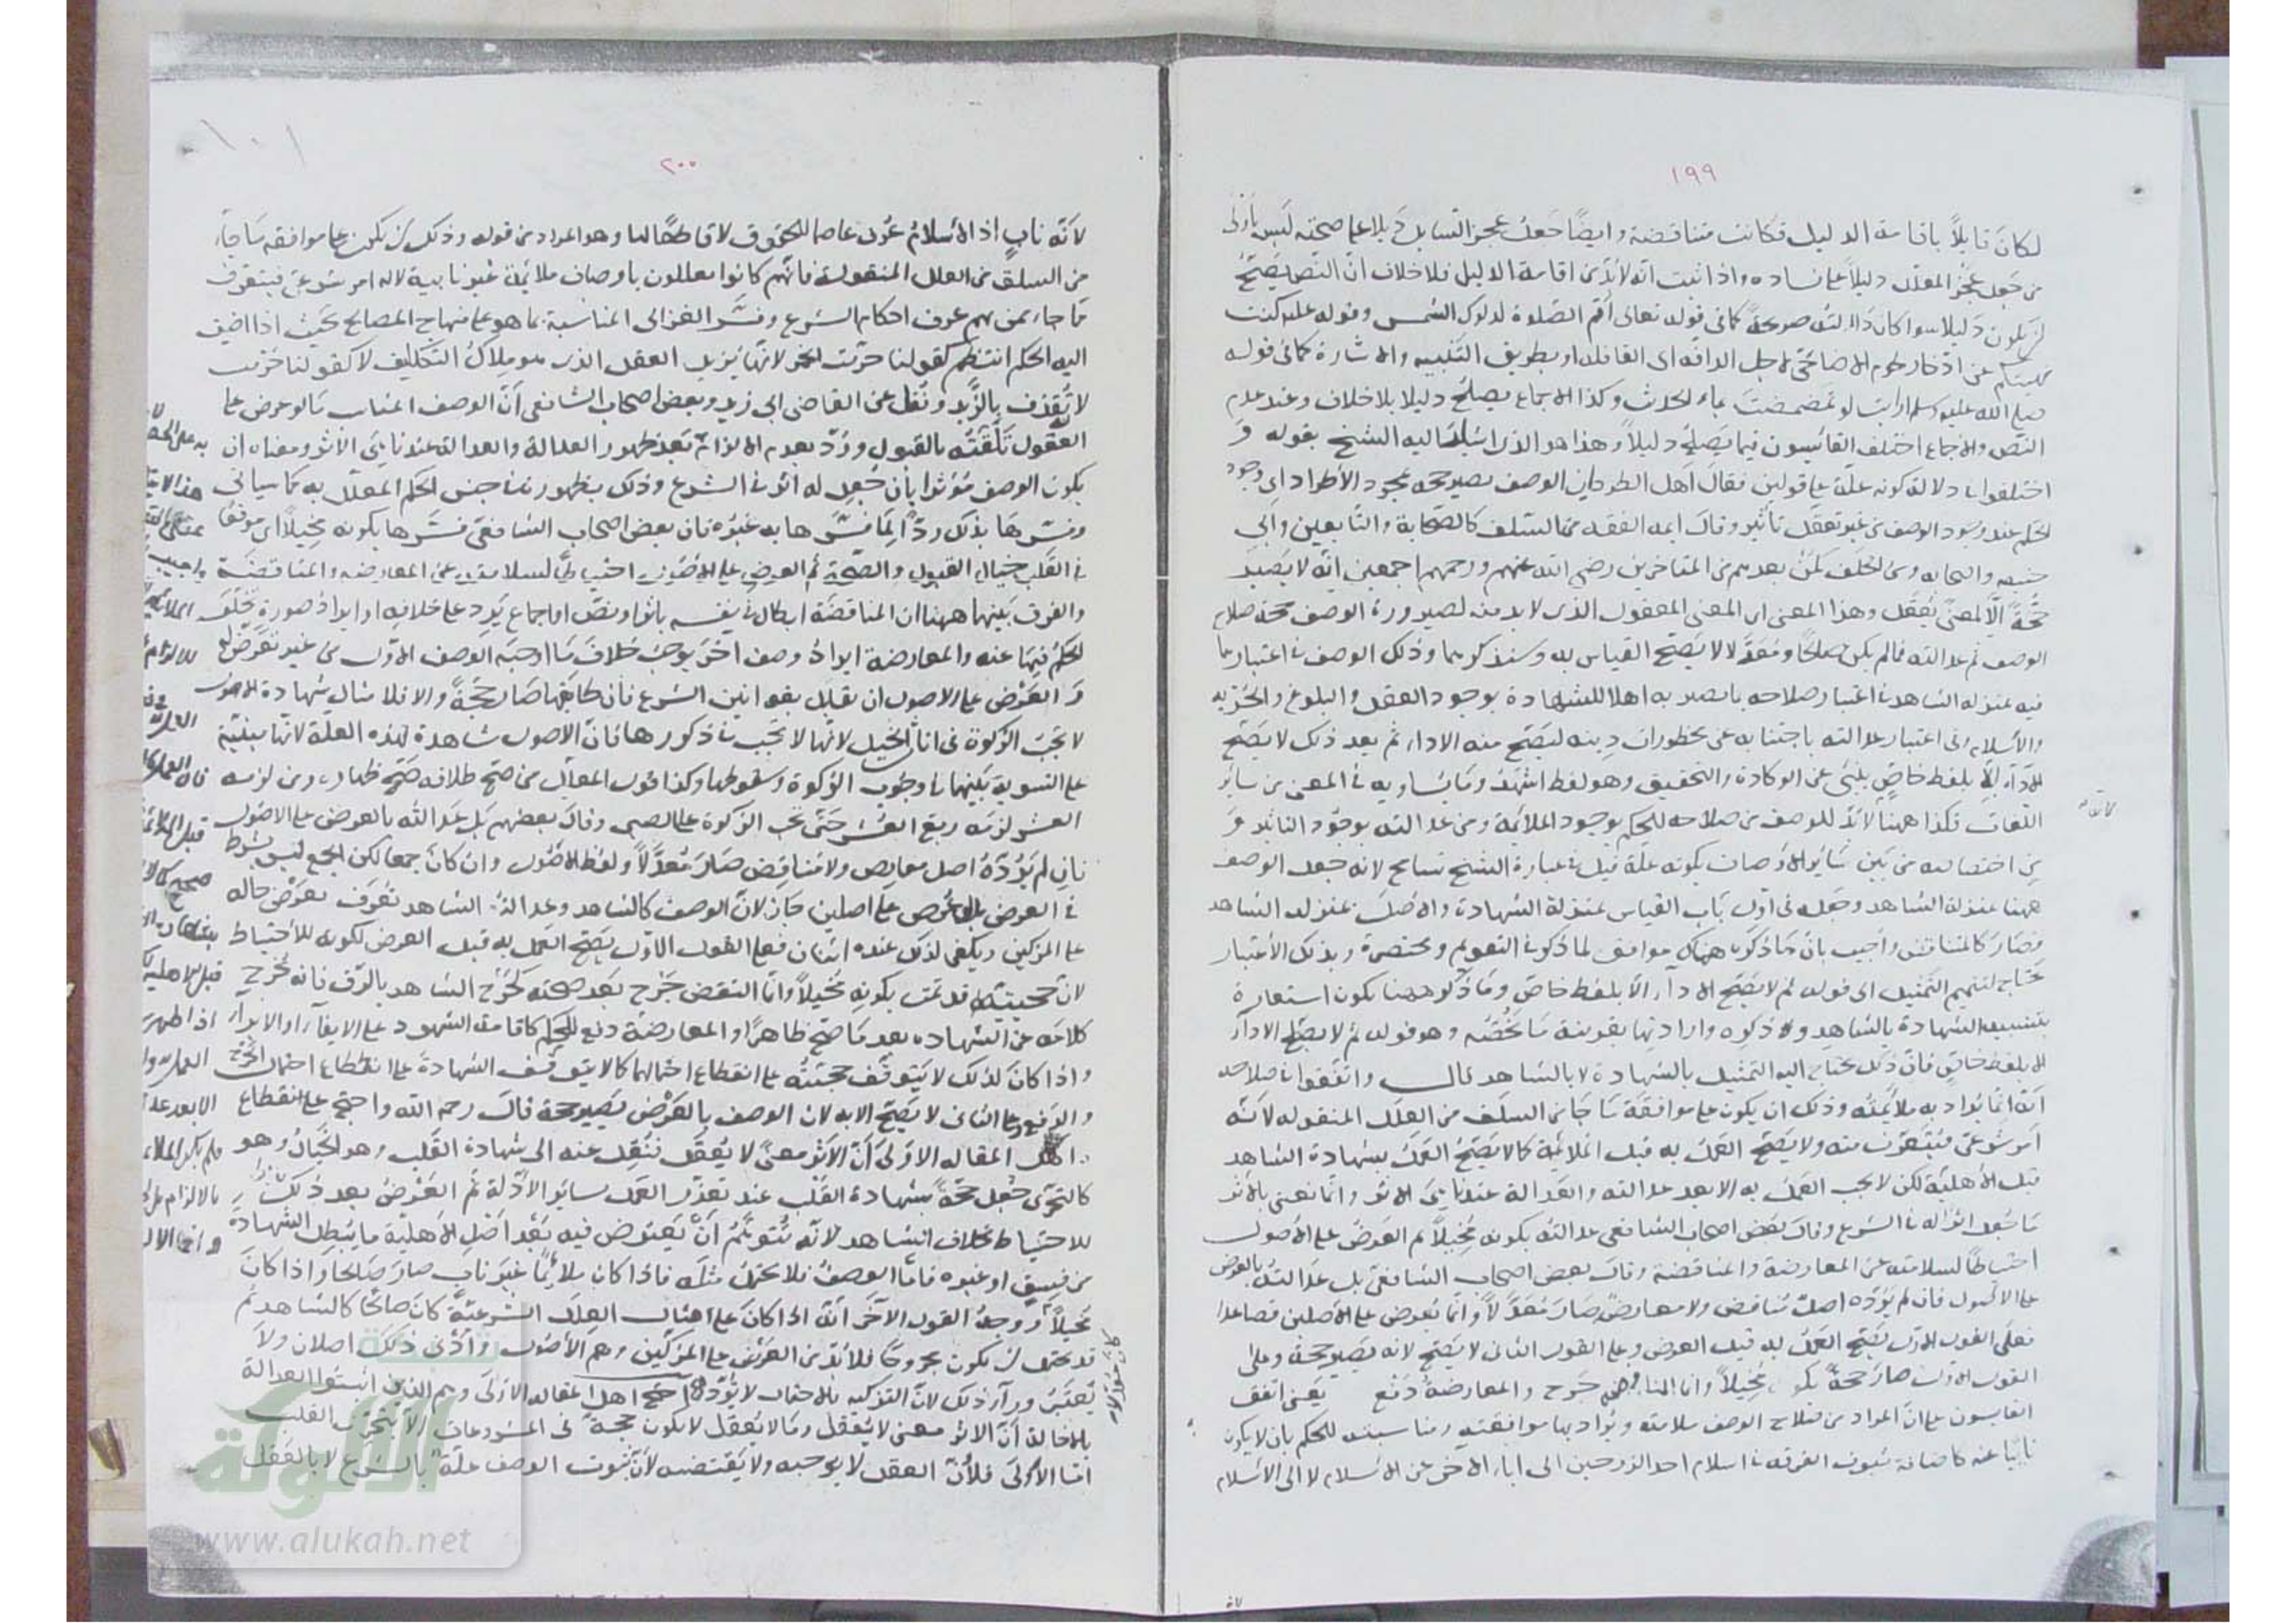 ١٩٩
لكان قايلاً باقامة الدليل فكانت متناقضة وايضًا جعل عجز السايل دليلا على صحته ليس باولى
من جعل عجز المعلل دليلاً على فساده واذا ثبت انه لابد من اقامة الدليل فلا خلاف ان النص يصح
ان يكون دليلا سوا كان دلالته صريحة كما فى قوله تعالى اقم الصلوة لدلوك الشمس وقوله عليه كنت
نهيتكم عن ادخار لحوم الاضاحى لاجل الدافه اى القافله او بطريق التنبيه والاشارة كما فى قوله
صلى الله عليه وسلم ارايت لو تمضمضت بماء الحدث وكذا الاجماع يصلح دليلا بلا خلاف وعند عدم
النص والاجماع اختلف القايسون فيما يصلح دليلاً وهذا هو الذى اشار اليه الشيخ بقوله و
اختلفوا فى دلالة كونه علة على قولين فقال اهل الطرد ان الوصف يصير حجه بمجرد الاطراد اى وجود
الحكم عند وجود الوصف من غير تعقل تاثير وقال ايمه الفقه من السلف كالصحابة والتابعين وابى
حنيفه واصحابه ومن الخلف كمن بعدهم من المتاخرين رضى الله عنهم ورحمهم اجمعين انه لا يصير
حجةً الا لمعنى يعقل وهذا المعنى اى المعنى المعقول الذى لابد منه لصيرورة الوصف حجة صلاح
الوصف ثم عدالته فما لم يكن صالحًا ومعدلا لا يصح القياس به وسنذكرهما وذلك الوصف فى اعتبارهما
فيه بمنزله الشاهد فى اعتبار صلاحه بما يصير به اهلا للشهادة بوجود العقل والبلوغ والحريه
والاسلام وفى اعتبار عدالته باجتنابه عن محظورات دينه ليصح منه الادا، ثم بعد ذلك لا يصح
الادا، الا بلفظ خاص ينبئ عن الوكادة والتحقيق وهو لفظ اشهد وما يساويه فى المعنى من ساير
اللغات فكذا ههنا لابد للوصف من صلاحه للحكم بوجود الملايمة ومن عدالته بوجود التاثير و
من اختصاصه من بين ساير الاوصاف بكونه علة قيل فى عبارة الشيخ تسامح لانه جعل الوصف
ههنا بمنزلة الشاهد وجعله فى اول باب القياس بمنزلة الشهادة والاصل بمنزله الشاهد
فصار كالمتناقض واجيب بان ما ذكره هناك موافق لما ذكر فى التقويم ومختصره وبذلك الاعتبار
يحتاج لتتميم التمثيل الى قوله ثم لا يصح الادآء الا بلفظ خاص وما ذكر ههنا يكون استعارة
بتشبيه الشهادة بالشاهد وذكره وارادتها بقرينة ما يخصه وهو قوله ثم لا يصح الادآء
الا بلفظ خاص فان ذلك يحتاج اليه التمثيل بالشهادة لا بالشاهد قال واتفقوا فى صلاحه
انه انما يراد به ملايمته وذلك ان يكون على موافقة ما جا، من السلف من العلل المنقوله لانه
امر شرعى فيتعرف منه ولا يصح العمل به قبل الملايمة كما لا يصح العمل بشهادة الشاهد
قبل الاهلية لكن لا يجب العمل به الا بعد عدالته والعدالة عندنا هى الاثر وانما نعنى بالاثر
ما جعل اثر له فى الشرع وقال بعض اصحاب الشافعى عدالته بكونه مخيلاً ثم العرض على الاصول
احتياطًا لسلامته عن المعارضة والمناقضة وقال بعض اصحاب الشافعى بل عدالته بالعرض
على الاصول فان لم يرده اصل مناقض ولا معارض صار معدلاً وانما يعرض على الاصلين فصاعدا
فعلى القول الاول يصح العمل به قبل العرض وعلى القول الثانى لا يصح لانه به يصير حجة وعلى
القول الاول صار حجة بكونه مخيلاً وانما النقض جرح والمعارضة دفع يعنى اتفق
القايسون على ان المراد من صلاح الوصف ملايمته ويراد بها موافقته ومناسبته للحكم بان لا يكون
نابيًا عنه كاضافة ثبوت الفرقه فى اسلام احد الزوجين الى اباء الاخر عن الاسلام لا الى الاسلام
٢٠٠
لانه نابٍ اذ الاسلام عرف عاصما للحقوق لا قاطعًا لها وهو المراد من قوله وذلك ان يكون على موافقه ما جاء
من السلف من العلل المنقولة فانهم كانوا يعللون باوصاف ملايمة غير نابية لانه امر شرعى فيتعرف
مما جاء، ممن بهم عرف احكام الشرع وفسر الغزالى المناسبة بما هو على منهاج المصالح بحيث اذا اضيف
اليه الحكم انتظم كقولنا حرمت الخمر لانها يزيل العقل الذى هو ملاك التكليف لا كقولنا حرمت
لا تقذف بالزبد ونقل عن القاضى ابى زيد وبعض اصحاب الشافعى ان الوصف المناسب ما لو عرض على
العقول تلقته بالقبول ورد بعدم الالزام ثم بعد ظهور العدالة والعدالة عندنا هى الاثر ومعناه ان
يكون الوصف مؤثرا بان جعل له اثر فى الشرع وذلك بظهوره فى جنس الحكم المعلل به كما سياتى
وفسرها بذلك ردا لما فسرها به غيره فان بعض اصحاب الشافعى فسرها بكونه مخيلاً اى موقعًا
فى القلب خيال القبول والصحة ثم العرض على الاصول احتياطًا لسلامته عن المعارضه والمناقضة
والفرق بينهما ههنا ان المناقضة ابطال نفسه باثر او نص او اجماع يرد على خلافه او ايراد صورة تخلف
الحكم فيها عنه والمعارضة ايراد وصف اخر يوجب خلاف ما اوجبه الوصف الاول من غير تعرض له
و العرض على الاصول ان يقابل بقوانين الشرع فان طابقها صار حجةً والا فلا مثال شهادة الاصول
لا تجب الزكوة فى اناث الخيل لانها لا تجب فى ذكورها فان الاصول شاهدة لهذه العلة لانها مبنية
على التسوية بينهما فى وجوب الزكوة وسقوطها وكذا قول المعلل من صح طلاقه صح ظهاره ومن لزمه
العشر لزمه ربع العشر حتى تجب الزكوة على الصبى وقال بعضهم بل عدالته بالعرض على الاصول
فان لم يرده اصل معارض ولا مناقض صار معدلاً ولفظ الاصول وان كان جمعا لكن الجمع ليس بشرط
فى العرض بل لو عرض على اصلين جاز لان الوصف كالشاهد وعدالة الشاهد تعرف بعرض حاله
على المزكين ويكفى لذلك عنده اثنان فعلى القول الاول يصح العمل به قبل العرض لكونه للاحتياط
لان حجيته قد تمت بكونه مخيلاً وانما النقض جرح بعد صحته كجرح الشاهد بالرق فانه يخرج
كلامه عن الشهاده بعد ما صح ظاهرًا والمعارضة دفع للحكم كاقامة الشهود على الايفاء او الابراء
واذا كان لذلك لا يتوقف حجيته على انقطاع احتمالهما كما لا يتوقف الشهادة على انقطاع احتمال الجرح
والدفع وعلى الثانى لا يصح الا به لان الوصف بالعرض يصير حجة قال رحمه الله واحتج
اهل المقاله الاولى ان الاثر معنى لا يعقل فنقل عنه الى شهادة القلب وهو الخيال وهو
كالتحرى جعل حجة بشهادة القلب عند تعذر العمل بساير الادلة ثم العرض بعد ذلك
للاحتياط بخلاف الشاهد لانه يتوهم ان يعترض فيه بعد اصل الاهلية ما يبطل الشهادة
من فسق او غيره فاما الوصف فلا يحتمل مثله فاذا كان ملايمًا غير ناب صار صالحا واذا كان
مخيلاً ووجه القول الآخر انه اذا كان على امثال العلل الشرعية كان صالحًا كالشاهد ثم
قد يحتمل ان يكون مجروحًا فلابد من العرض على المزكين وهم الاصول وادنى ذلك اصلان ولا
يعتبر ورآء ذلك لان التزكيه بالاحتمال لا يرد احتج اهل المقاله الاولى وهم الذين اثبتوا العدالة
بالاخالة ان الاثر معنى لا يعقل وما لا يعقل لا يكون حجة فى المشروعات الا بتحرى القلب
اما الاولى فلان العقل لا يوجبه ولا يقتضيه لان ثبوت الوصف علة بالشرع لا بالعقل
الألوكة
www.alukah.net